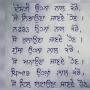 ਦੋਸਤੀ ਉਹਨਾਂ ਨਾਲ ਕਰੋ,
ਜੋ ਨਿਭਾਉਣਾ ਜਾਣਦੇ ਹੋਣ।
ਨਫ਼ਰਤ ਉਹਨਾਂ ਨਾਲ ਕਰੋ,
ਜੋ ਭੁਲਾਉਣਾ ਜਾਣਦੇ ਹੋਣ।
ਗੁੱਸਾ ਉਹਨਾਂ ਨਾਲ ਕਰੋ,
ਜੋ ਮਨਾਉਣਾ ਜਾਣਦੇ ਹੋਣ।
ਪਿਆਰ ਉਹਨਾਂ ਨਾਲ ਕਰੋ,
ਜੋ ਦਿਲ ਲਾਉਣਾ ਜਾਣਦੇ ਹੋਣ।